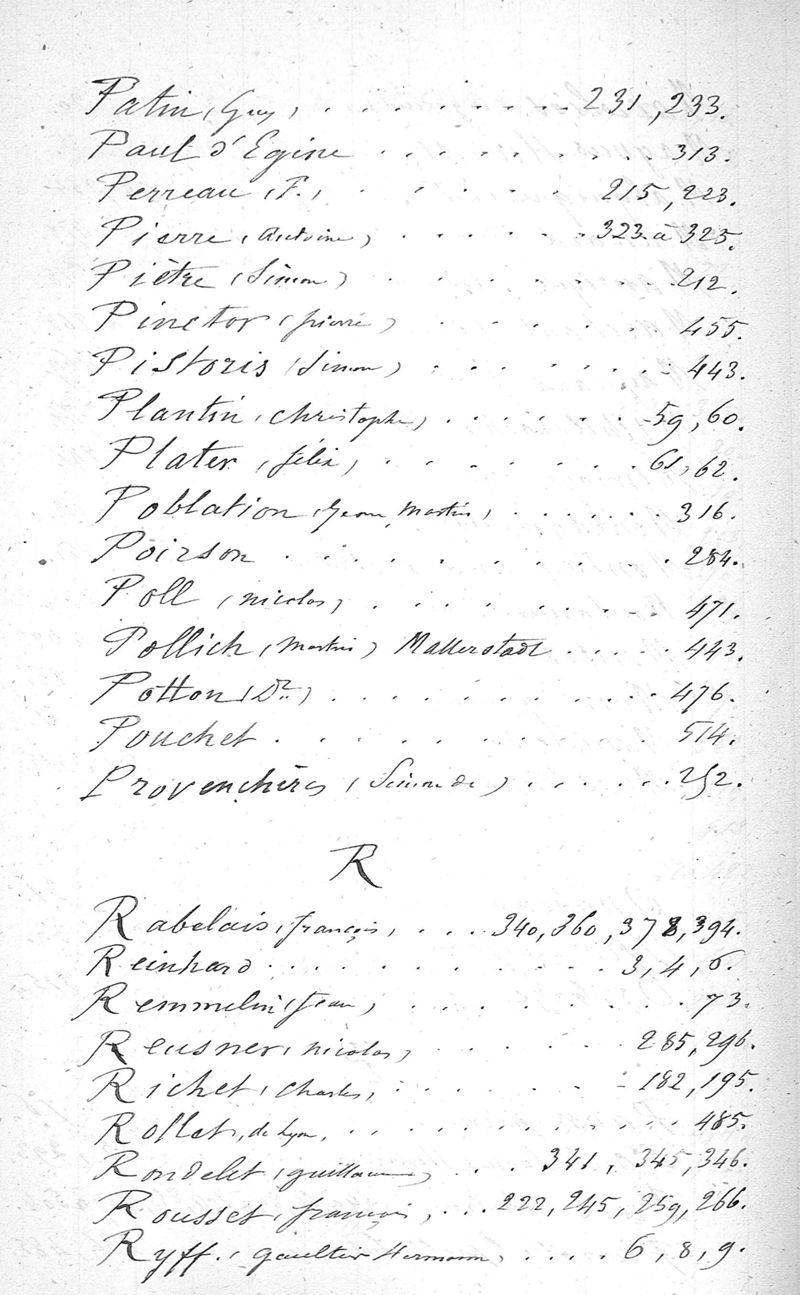 Patin (Guy) . . . . . . . . 231, 233.
Paul d'Egine . . . . . . . . 313.
Perreau (F.) . . . . . . 215, 223.
Pierre (Antoine) . . . . . 323 à 325.
Piètre (Simon) . . . . . . . 212.
Pinctor (pierre) . . . . . . 455.
Pistoris (Simon) . . . . . . . 443.
Plantin (christophe) . . . . . . 59, 60.
Plater (félix) . . . . . . . 61, 62.
Poblation (Jean Martin) . . . . . . 316.
Poirson . . . . . . . . . 284.
Poll (nicolas) . . . . . . . . 471.
Pollich (Martin) Mallerstadt . . . . . 443.
Potton (Dr) . . . . . . . . . 476.
Pouchet . . . . . . . . 514.
Provenchères (Simon de) . . . . . . . 252.
R
Rabelais (françois) . . . . 340, 360, 378, 394.
Reinhard . . . . . . . . . . . 3, 4, 6.
Remmelin (Jean) . . . . . . . . 73.
Reusner (nicolas) . . . . . . 285, 296.
Richet (Charles) . . . . . . 182, 195.
Rollet, de Lyon, . . . . . . . . . 485.
Rondelet (guillaume) . . . . 341, 345, 346.
Rousset (françois) . . . 222, 245, 259, 266.
Ryff. (gaultier Hermann) . . . . 6, 8, 9.